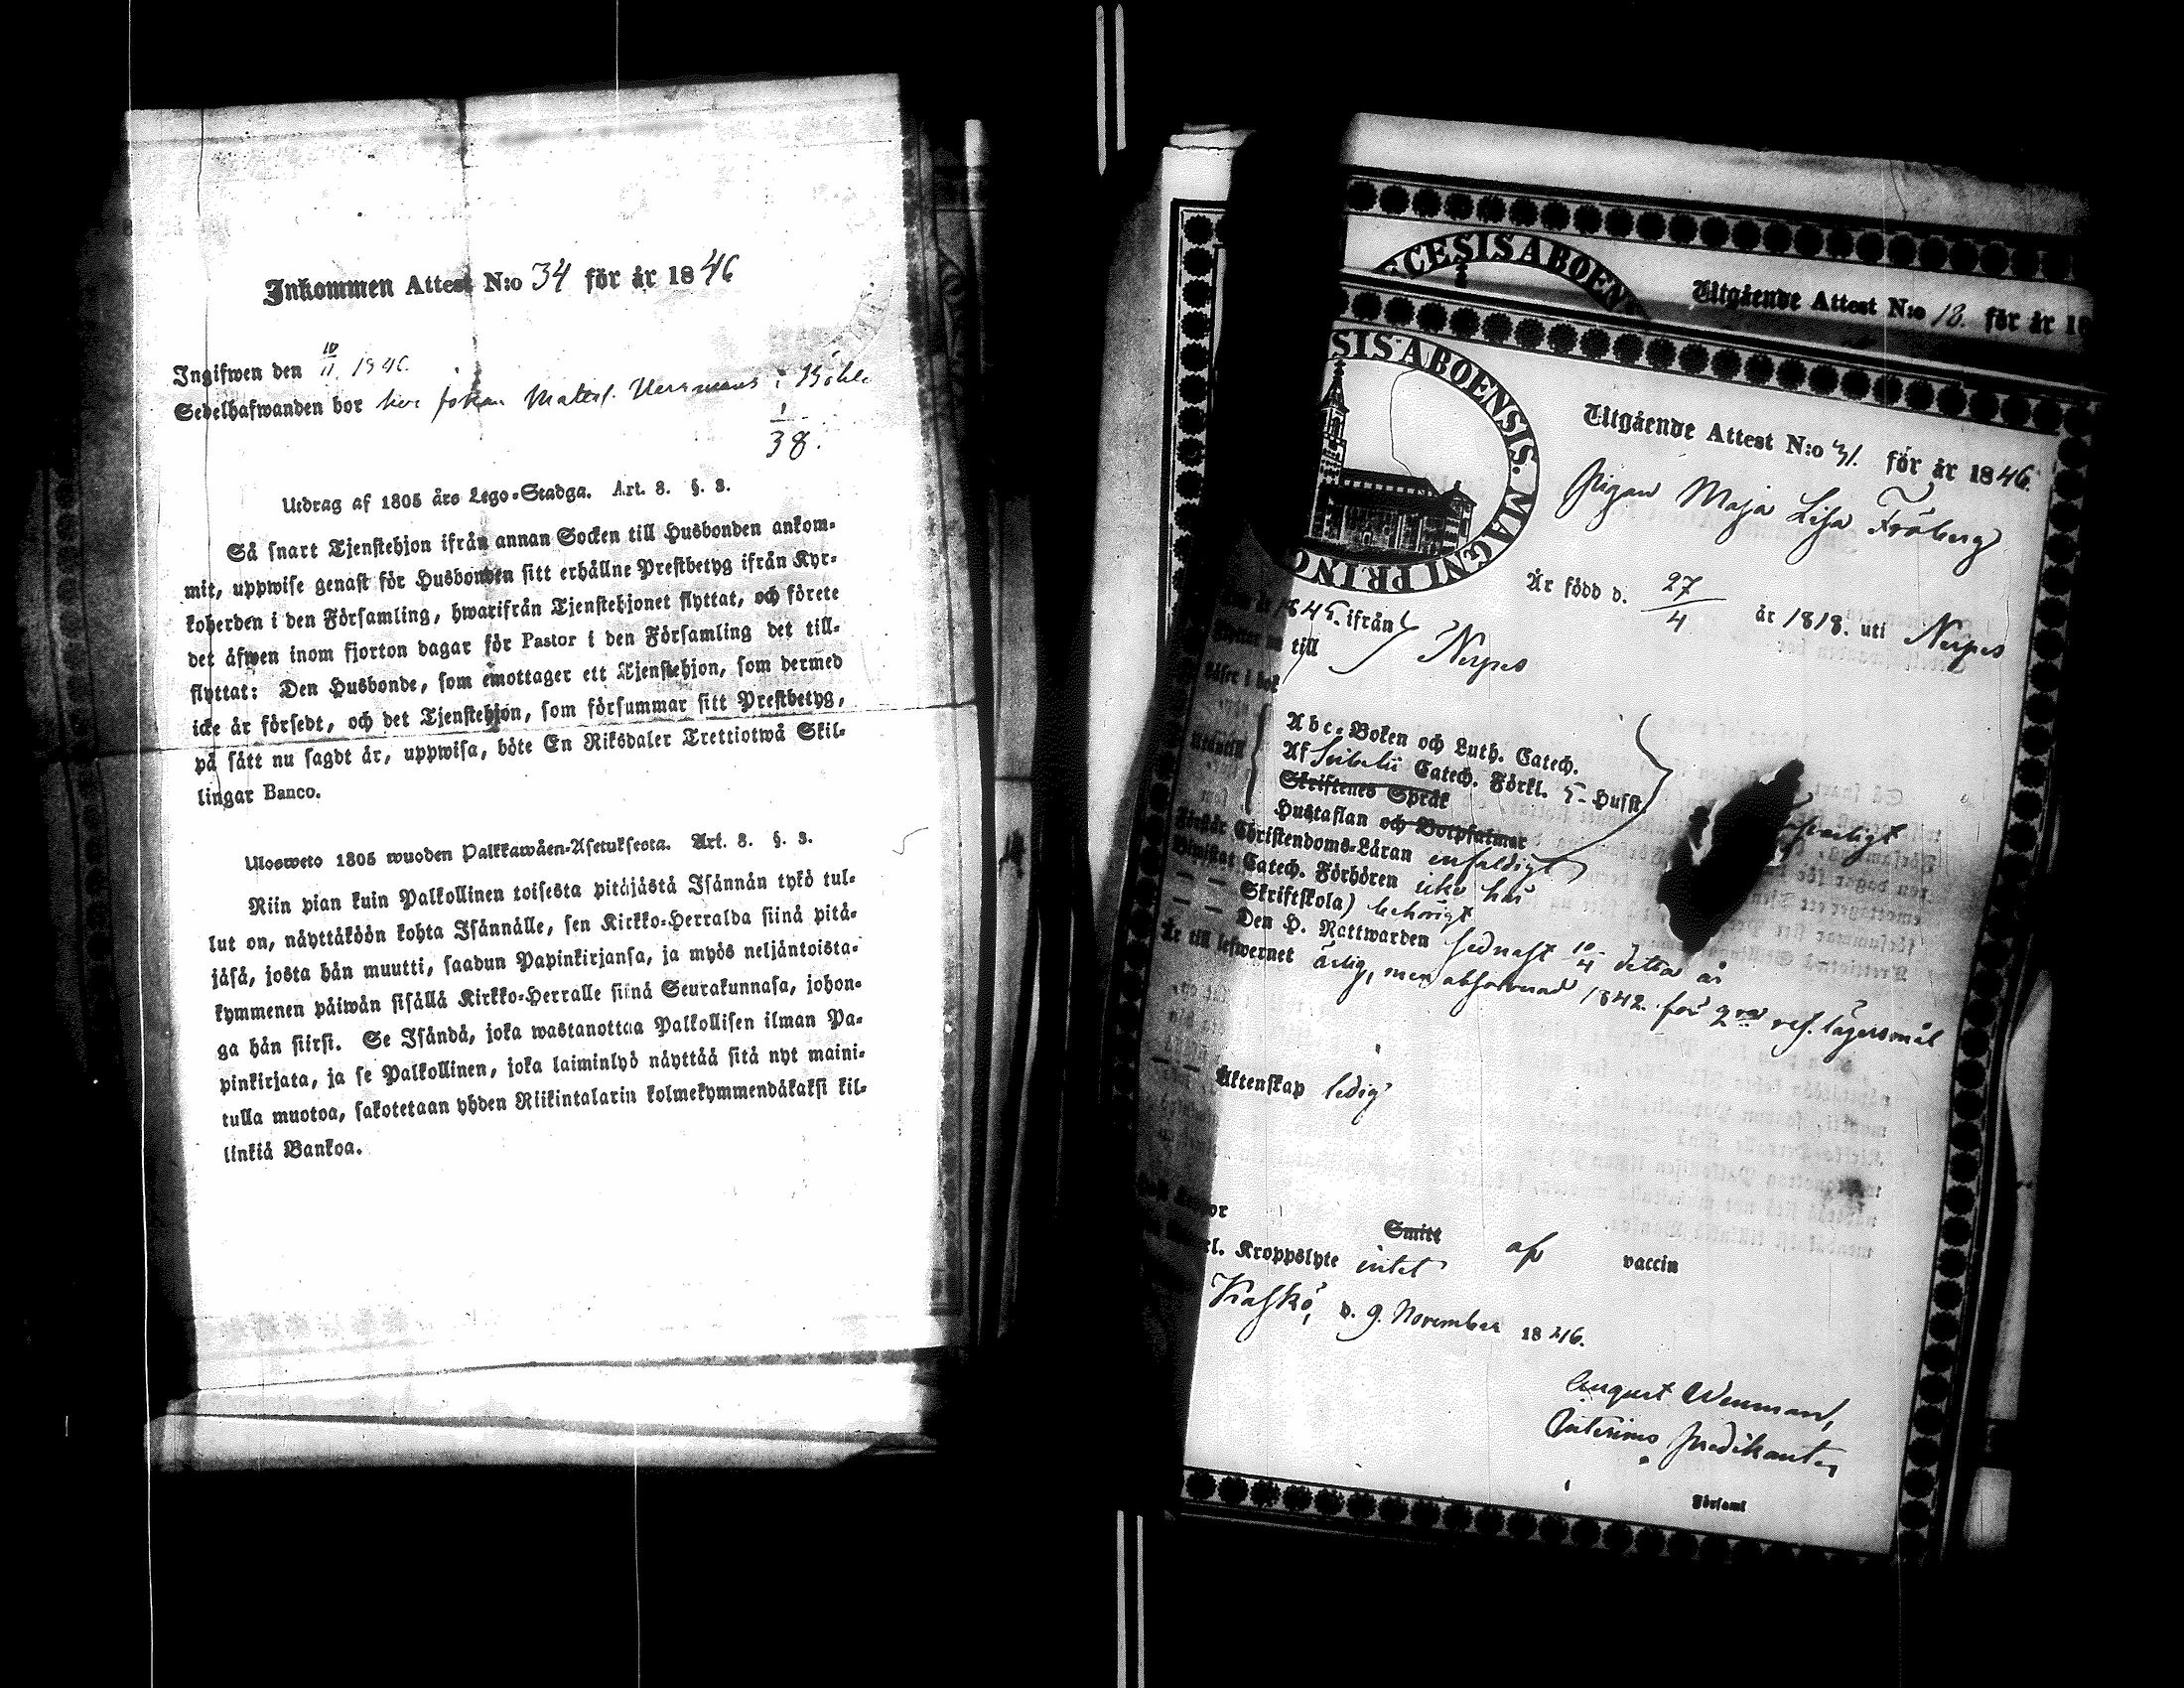 Inkommen Attest N:o 34 för år 1846
Ingifwen den 10/11 1846.
Sedelhafwanden bor hos Johan Matess. Herrmans i Böhle
1/38.
Utdrag af 1805 års Lego-Stadga. Art. 8. §. 3.
Så snart Tjenstehjon ifrån annan Socken till Husbonden ankom-
mit, uppwise genast för Husbonden sitt erhållne Prestbetyg ifrån Kyr-
koherden i den Församling, hwarifrån Tjenstehjonet flyttat, och förete
det äfwen inom fjorton dagar för Pastor i den Församling det till-
flyttat: Den Husbonde, som emottager ett Tjenstehjon, som dermed
icke är försedt, och det Tjenstehjon, som försummar sitt Prestbetyg,
på sätt nu sagdt är, uppwisa, böte En Riksdaler Trettiotwå Skil-
lingar Banco.
Ulosweto 1805 wuoden Palkkawäen-Asetuksesta. Art. 8. §. 3.
Niin pian kuin Palkollinen toisesta pitäjästä Isännän tykö tul-
lut on, näyttäköön kohta Isännälle, sen Kirkko-Herralda siinä pitä-
jäsä, josta hän muutti, saadun Papinkirjansa, ja myös neljäntoista-
kymmenen päiwän sisällä Kirkko-Herralle siinä Seurakunnasa, johon-
ga hän siirsi. Se Isändä, joka wastanottaa Palkollisen ilman Pa-
pinkirjata, ja se Palkollinen, joka laiminlyö näyttää sitä nyt maini-
tulla muotoa, sakotetaan yhden Riikintalarin kolmekymmendäkaksi kil-
linkiä Bankoa.
CESIS ABOEN
Utgående Attest N:o 18. för år 1
SIS ABOENSIS. MAGNI PRINC
Utgående Attest N:o 31. för år 1846.
Pigan Maja Lisa Fröberg
Är född d. 27/4 år 1818. uti Nerpes
1845. ifrån
till Nerpes
Läser i bok
Utantill
Abc-Boken och Luth. Catech.
Af Sebelii Catech. Förkl. Hufst.
Skriftenes Språk
Hustaflan och Botpsalmer
Förstår Christendoms-Läran enfaldigt
Bewistat Catech. Förhören icke här
— — Skriftskola) behörigt
— — Den H. Nattwarden sednast 10/4 detta år
Är till lefwernet ärlig, men absolverad 1842 för 2ra res. lägersmål
— — Äktenskap ledig
Smitt af vaccin
Kroppslyte intet
Kaskö, d. 9. November 1846.
August Wenman,
Interims predikant
Församl